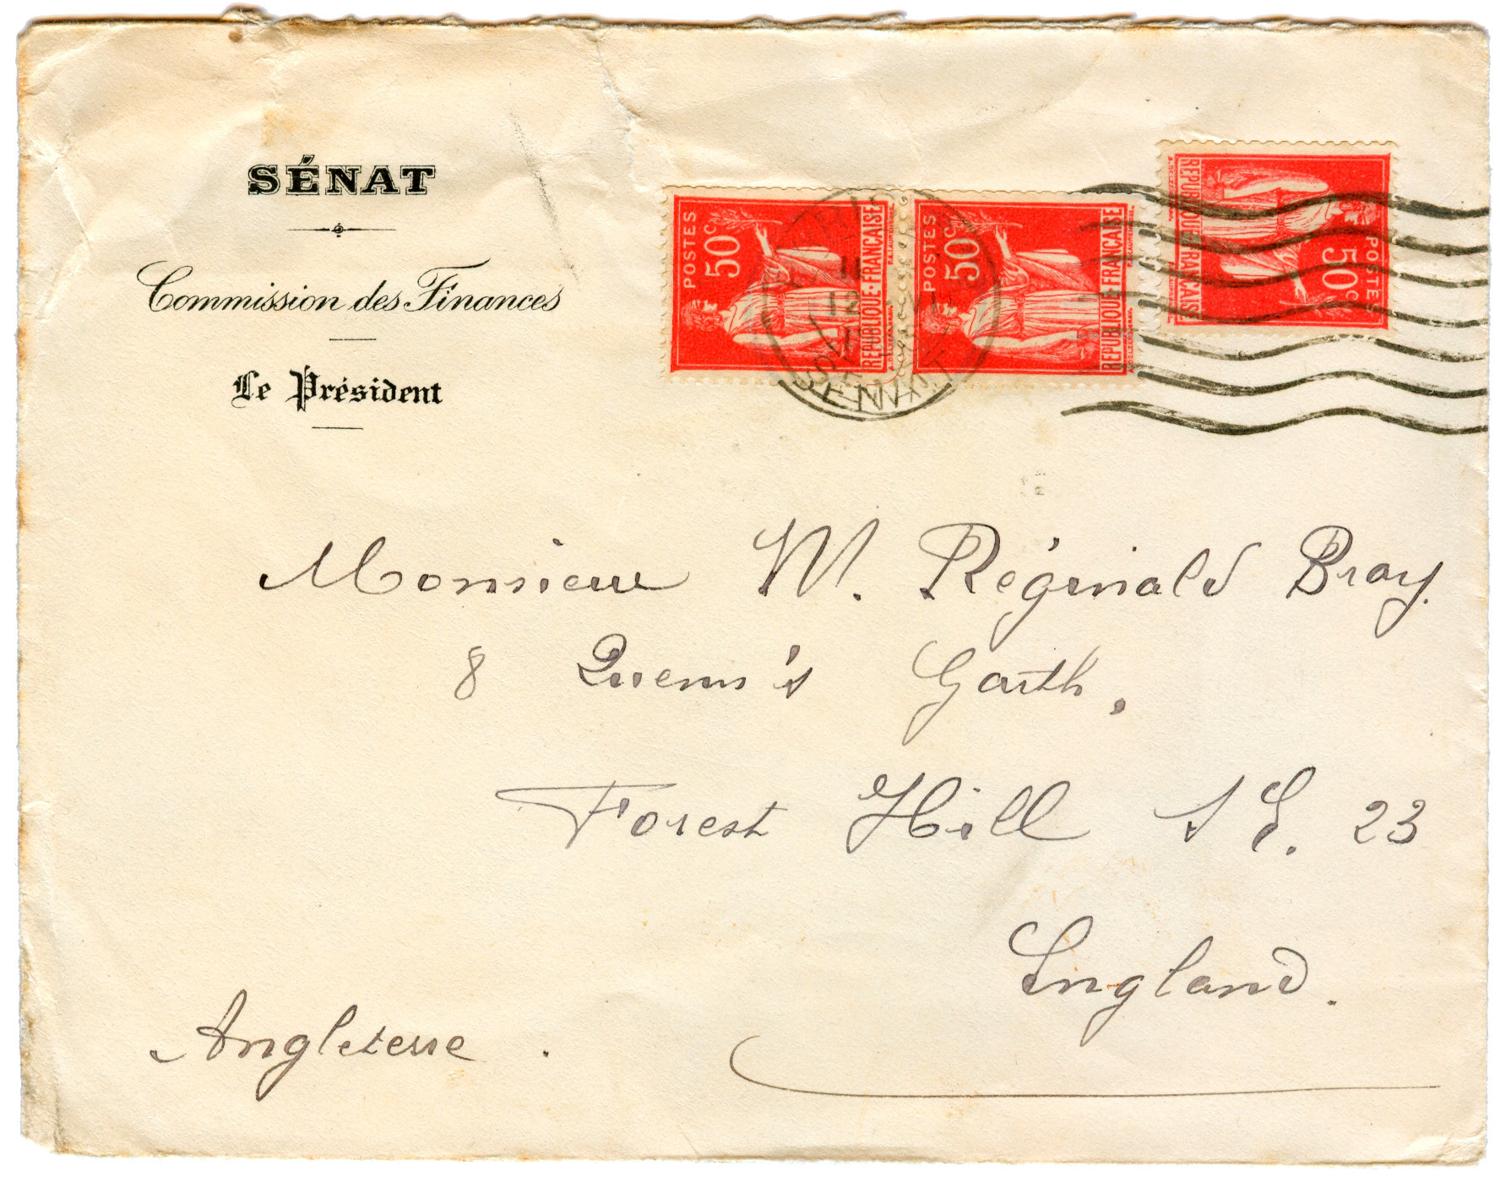 SÉNAT
Commission des Finances
Le Président
POSTES 50c RÉPUBLIQUE-FRANÇAISE
POSTES 50c RÉPUBLIQUE-FRANÇAISE
POSTES 50c RÉPUBLIQUE-FRANÇAISE
12
Monsieur W. Réginald Bray.
8 Queens's Garth,
Forest Hill S E. 23
England.
Angleterre.